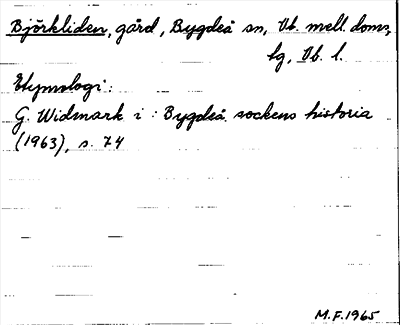 Björkliden, gård, Bygdeå sn, Vb. mell. doms,
tg, Vb. l.
Etymologi:
G. Widmark i: Bygdeå sockens historia
(1963), s. 74
M.F. 1965